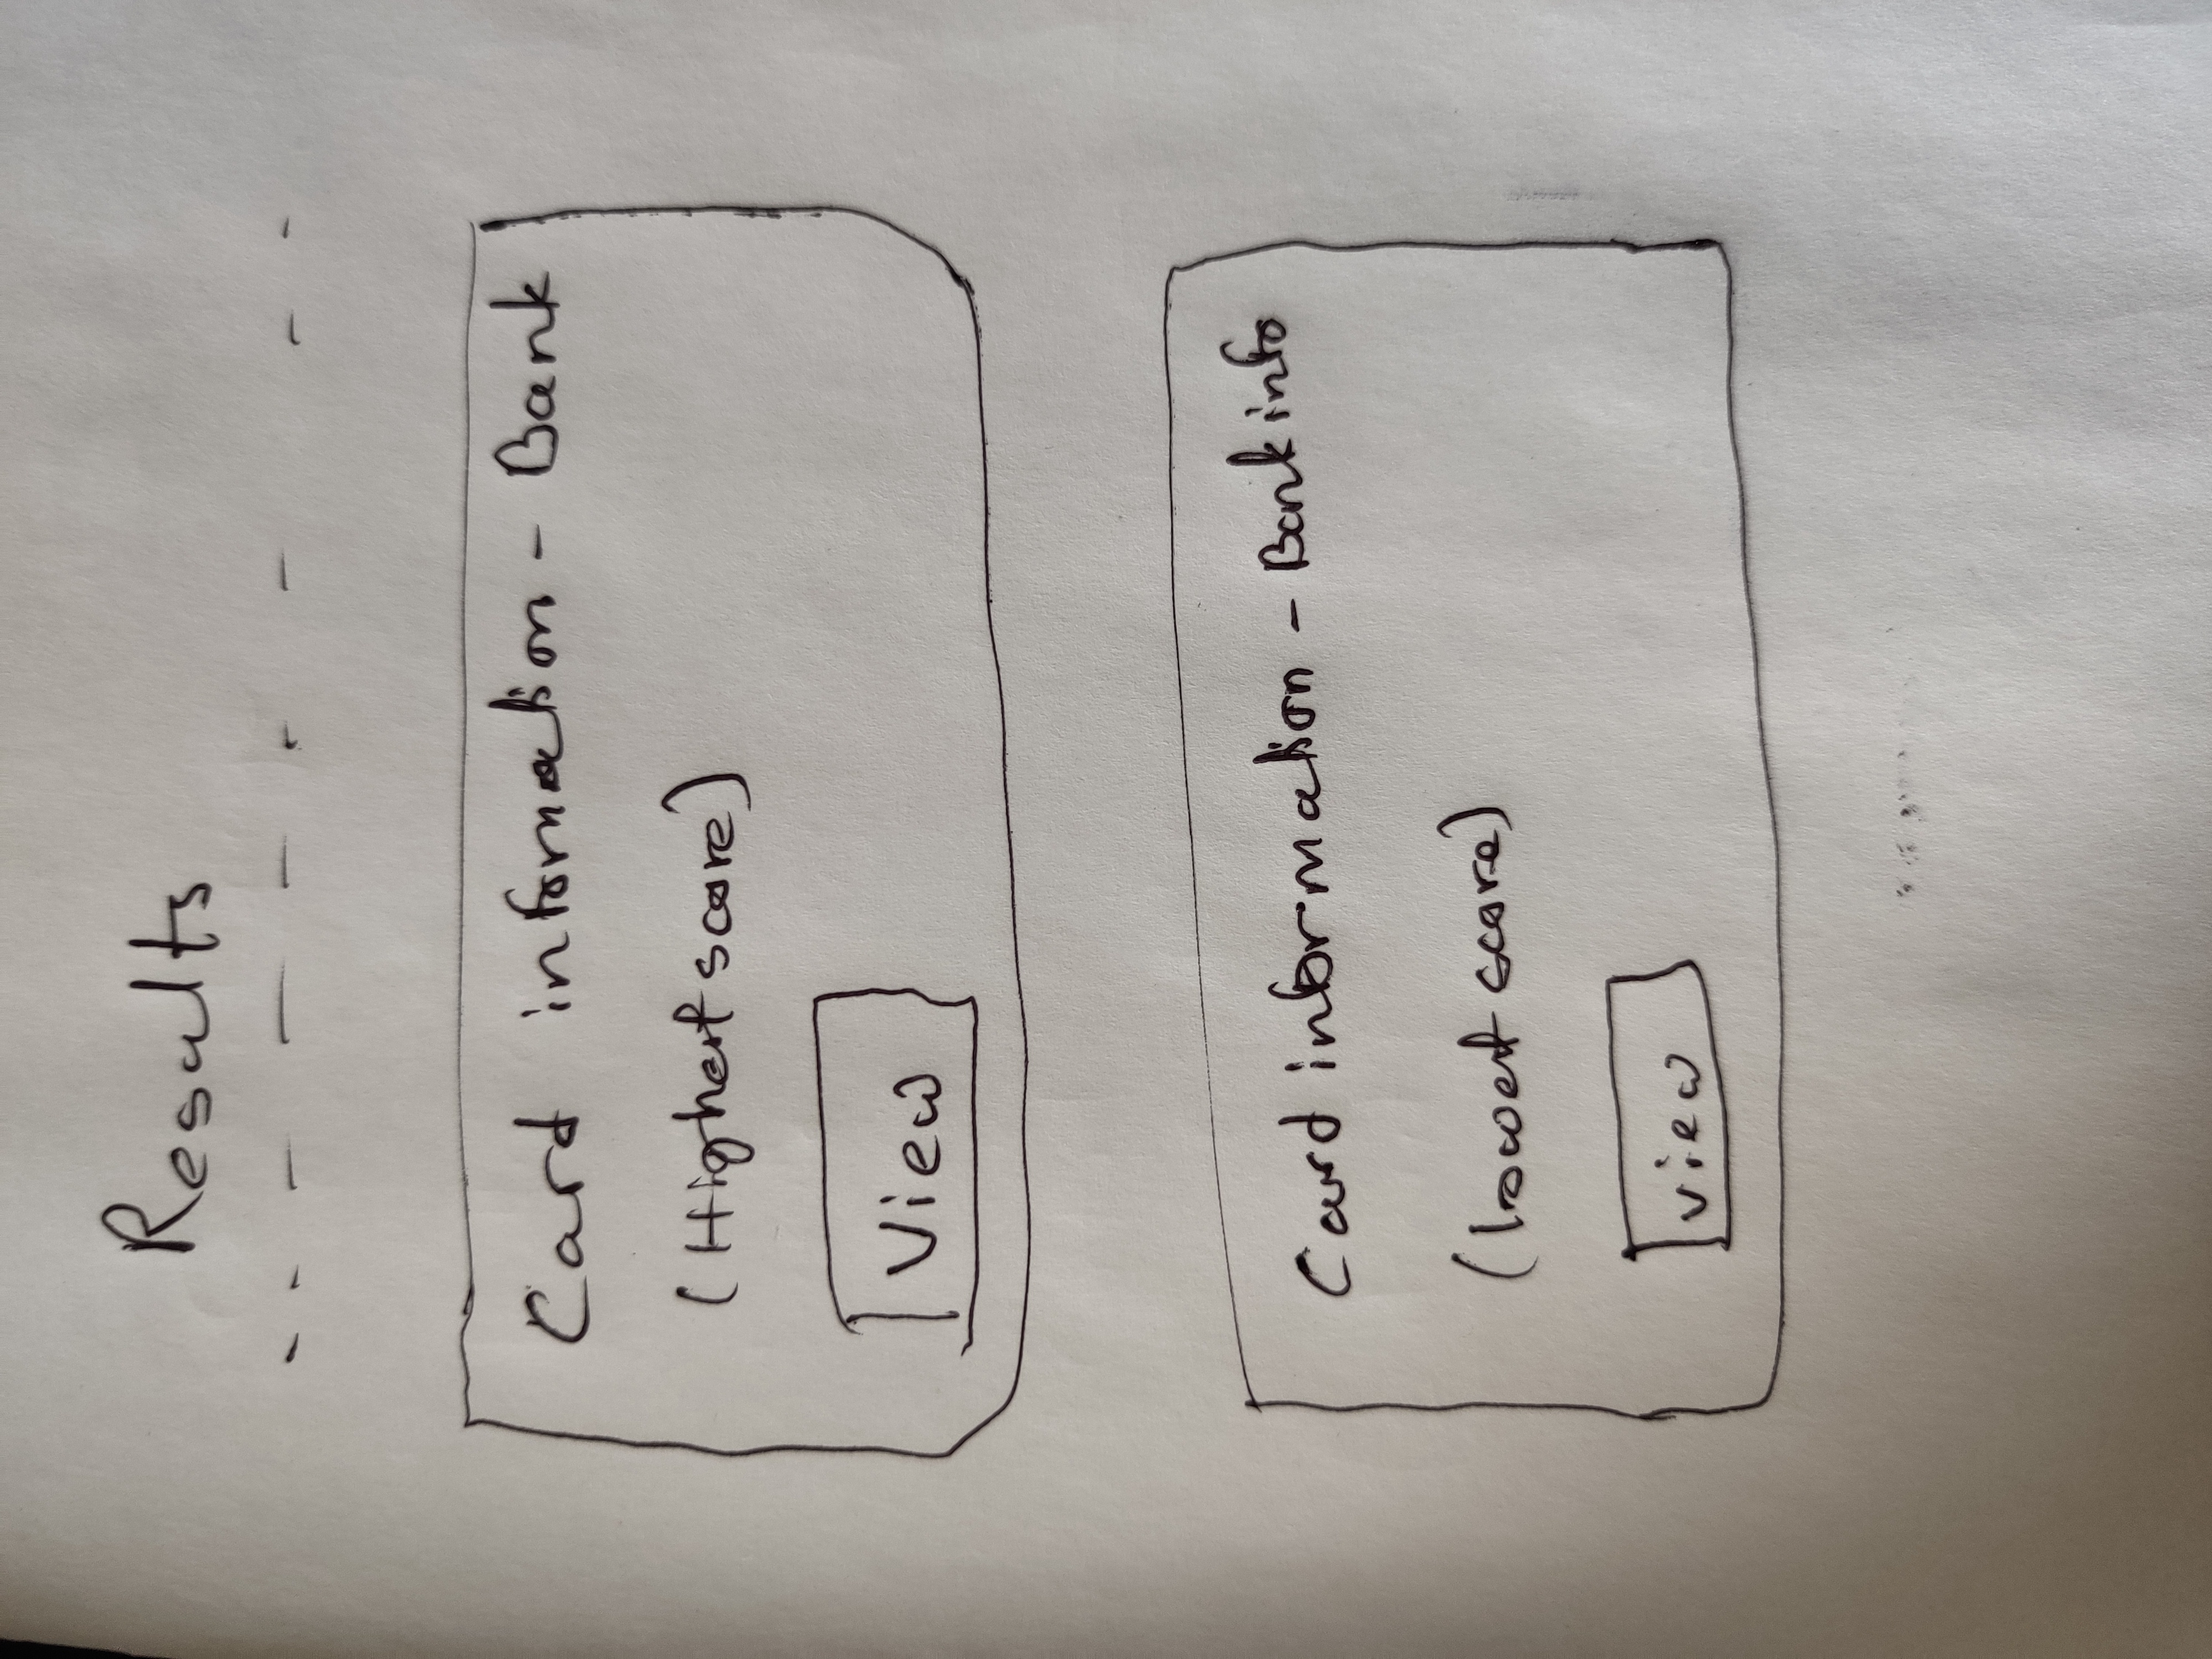 Results
Card information - Bank
(Highest score)
View
Card information - Bank info
(lowest score)
view